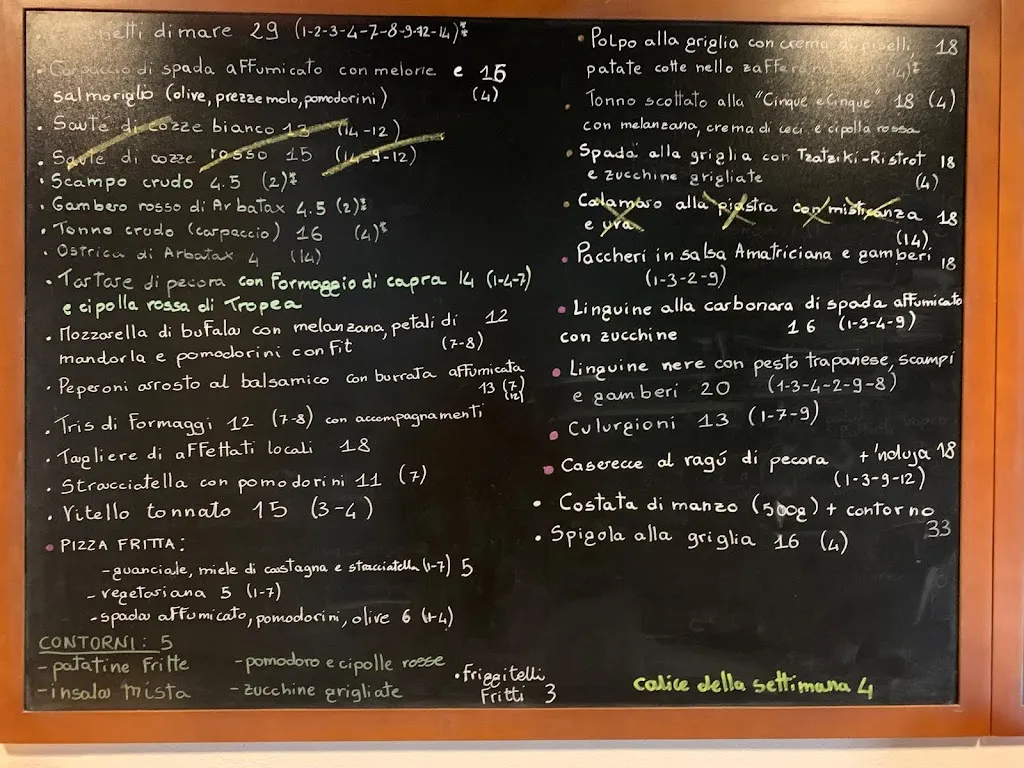 di mare 29 (1-2-3-4-7-8-9-12-14)*
• Carpaccio di spada affumicato con melone e 15
salmoriglio (olive, prezzemolo, pomodorini) (4)
• Sauté di cozze bianco 13 (14-12)
• Sauté di cozze rosso 15 (14-9-12)
• Scampo crudo 4.5 (2)*
• Gambero rosso di Arbatax 4.5 (2)*
• Tonno crudo (carpaccio) 16 (4)*
• Ostrica di Arbatax 4 (14)
• Tartare di pecora con formaggio di capra 14 (1-4-7)
e cipolla rossa di Tropea
• Mozzarella di bufala con melanzana, petali di 12
mandorla e pomodorini confit (7-8)
• Peperoni arrosto al balsamico con burrata affumicata
13 (7)
(12)
• Tris di formaggi 12 (7-8) con accompagnamenti
• Tagliere di affettati locali 18
• Stracciatella con pomodorini 11 (7)
• Vitello tonnato 15 (3-4)
• PIZZA FRITTA:
- guanciale, miele di castagna e stracciatella (1-7) 5
- vegetariana 5 (1-7)
- spada affumicato, pomodorini, olive 6 (1-4)
CONTORNI: 5
- patatine fritte
- insalata mista
- pomodoro e cipolle rosse
- zucchine grigliate
• Friggitelli
fritti 3
• Polpo alla griglia con crema di piselli, 18
patate cotte nello (14)*
• Tonno scottato alla "Cinque e Cinque" 18 (4)
con melanzana, crema di ceci e cipolla rossa
• Spada alla griglia con Tzatziki-Ristrot 18
e zucchine grigliate (4)
• Calamaro alla piastra con misticanza 18
e uva (14)
• Paccheri in salsa Amatriciana e gamberi 18
(1-3-2-9)
• Linguine alla carbonara di spada affumicato
con zucchine 16 (1-3-4-9)
• Linguine nere con pesto trapanese, scampi
e gamberi 20 (1-3-4-2-9-8)
• Culurgioni 13 (1-7-9)
• Caserecce al ragú di pecora + 'nduja 18
(1-3-9-12)
• Costata di manzo (500g) + contorno
33
• Spigola alla griglia 16 (4)
calice della settimana 4